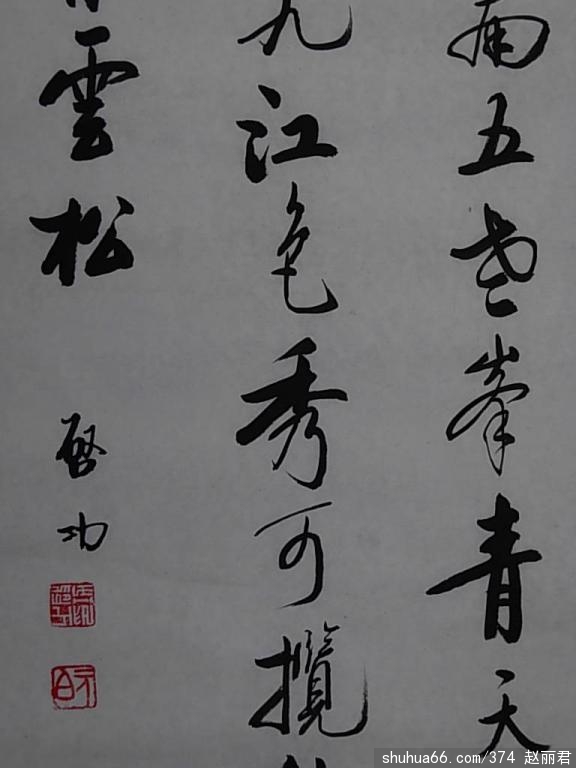 南五老峯青天
九江色秀可攬
雲松
啓功
元白
shuhua66.com/374 赵丽君